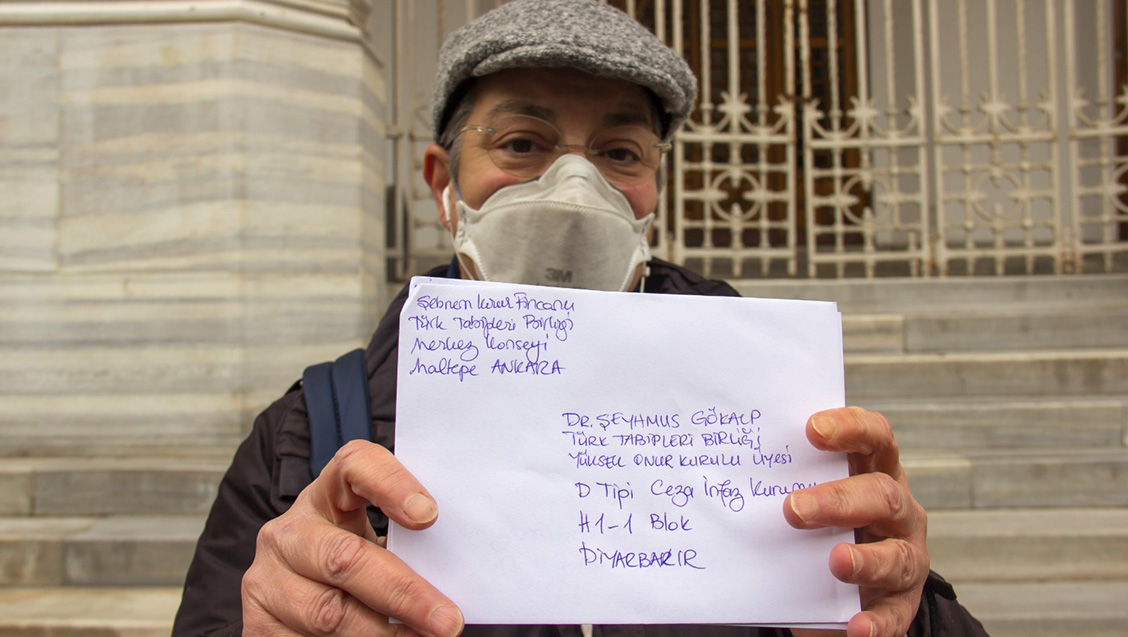 3M
Şebnem Korur Fincancı
Türk Tabipleri Birliği
Merkez Konseyi
Maltepe ANKARA
DR. ŞEYHMUS GÖKALP
TÜRK TABİPLERİ BİRLİĞİ
YÜKSEK ONUR KURULU ÜYESİ
D Tipi Ceza İnfaz Kurumu
H1-1 Blok
DİYARBAKIR